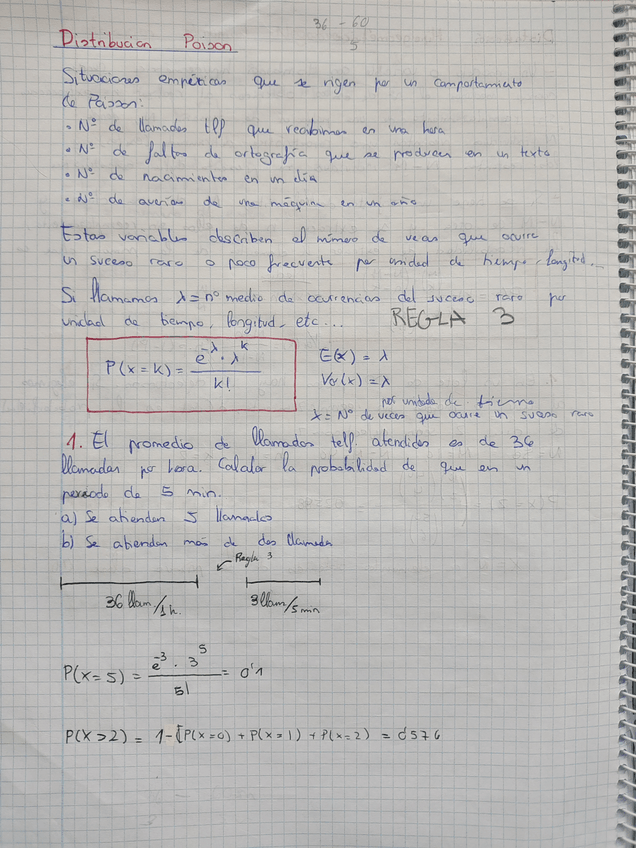 36 - 60
5
Distribucion Poison
Situaciones empíricas que se rigen por un comportamiento
de Poisson:
• Nº de llamadas tlf que recibimos en una hora
• Nº de faltas de ortografía que se producen en un texto
• Nº de nacimientos en un día
• Nº de averías de una máquina en un año
Estas variables describen el número de veces que ocurre
un suceso raro o poco frecuente por unidad de tiempo, longitud...
Si llamamos λ = nº medio de ocurrencias del suceso raro por
unidad de tiempo, longitud, etc...
REGLA 3
P(x = k) = e^-λ · λ^k / k!
E(x) = λ
Var(x) = λ
por unidad de tiempo
x = Nº de veces que ocurre un suceso raro
1. El promedio de llamadas telf. atendidas es de 36
llamadas por hora. Calcular la probabilidad de que en un
periodo de 5 min.
a) Se atienden 5 llamadas
b) Se atiendan mas de dos llamadas
Regla 3
36 llam/1h.
3 llam/5 min
P(x = 5) = e^-3 · 3^5 / 5! = 0'1
P(x > 2) = 1-[P(x=0) + P(x=1) + P(x=2) = 0'576